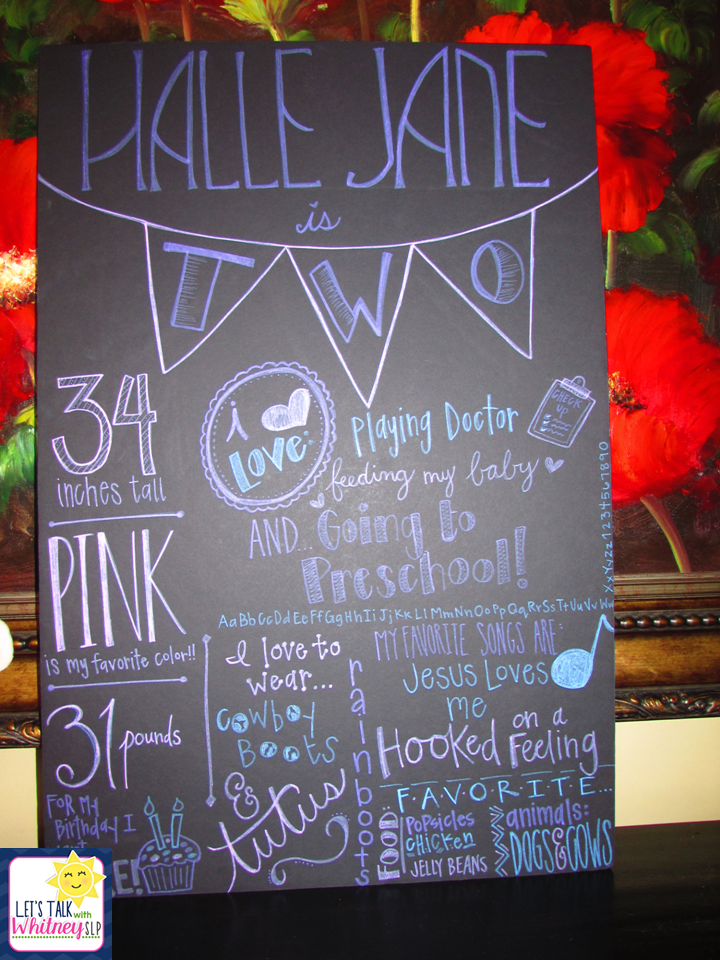 HALLE JANE
is
TWO
34
inches tall
PINK
is my favorite color!!
31 pounds
FOR MY
Birthday I
E!
i
LOVE:
Playing Doctor
CHECK
UP
feeding my baby
AND... Going to
Preschool!
AaBbCcDdEeFfGgHhIiJjKkLlMmNnOoPpQqRrSsTtUuVvWw
XxYyZz1234567890
I love to
wear...
Cowboy
Boots
& tutus
rainboots
MY FAVORITE SONGS ARE:
Jesus Loves
me
Hooked on a
Feeling
FAVORITE...
FOOD:
Popsicles
chicken
JELLY BEANS
animals:
DOGS & COWS
LET'S TALK with
Whitney SLP